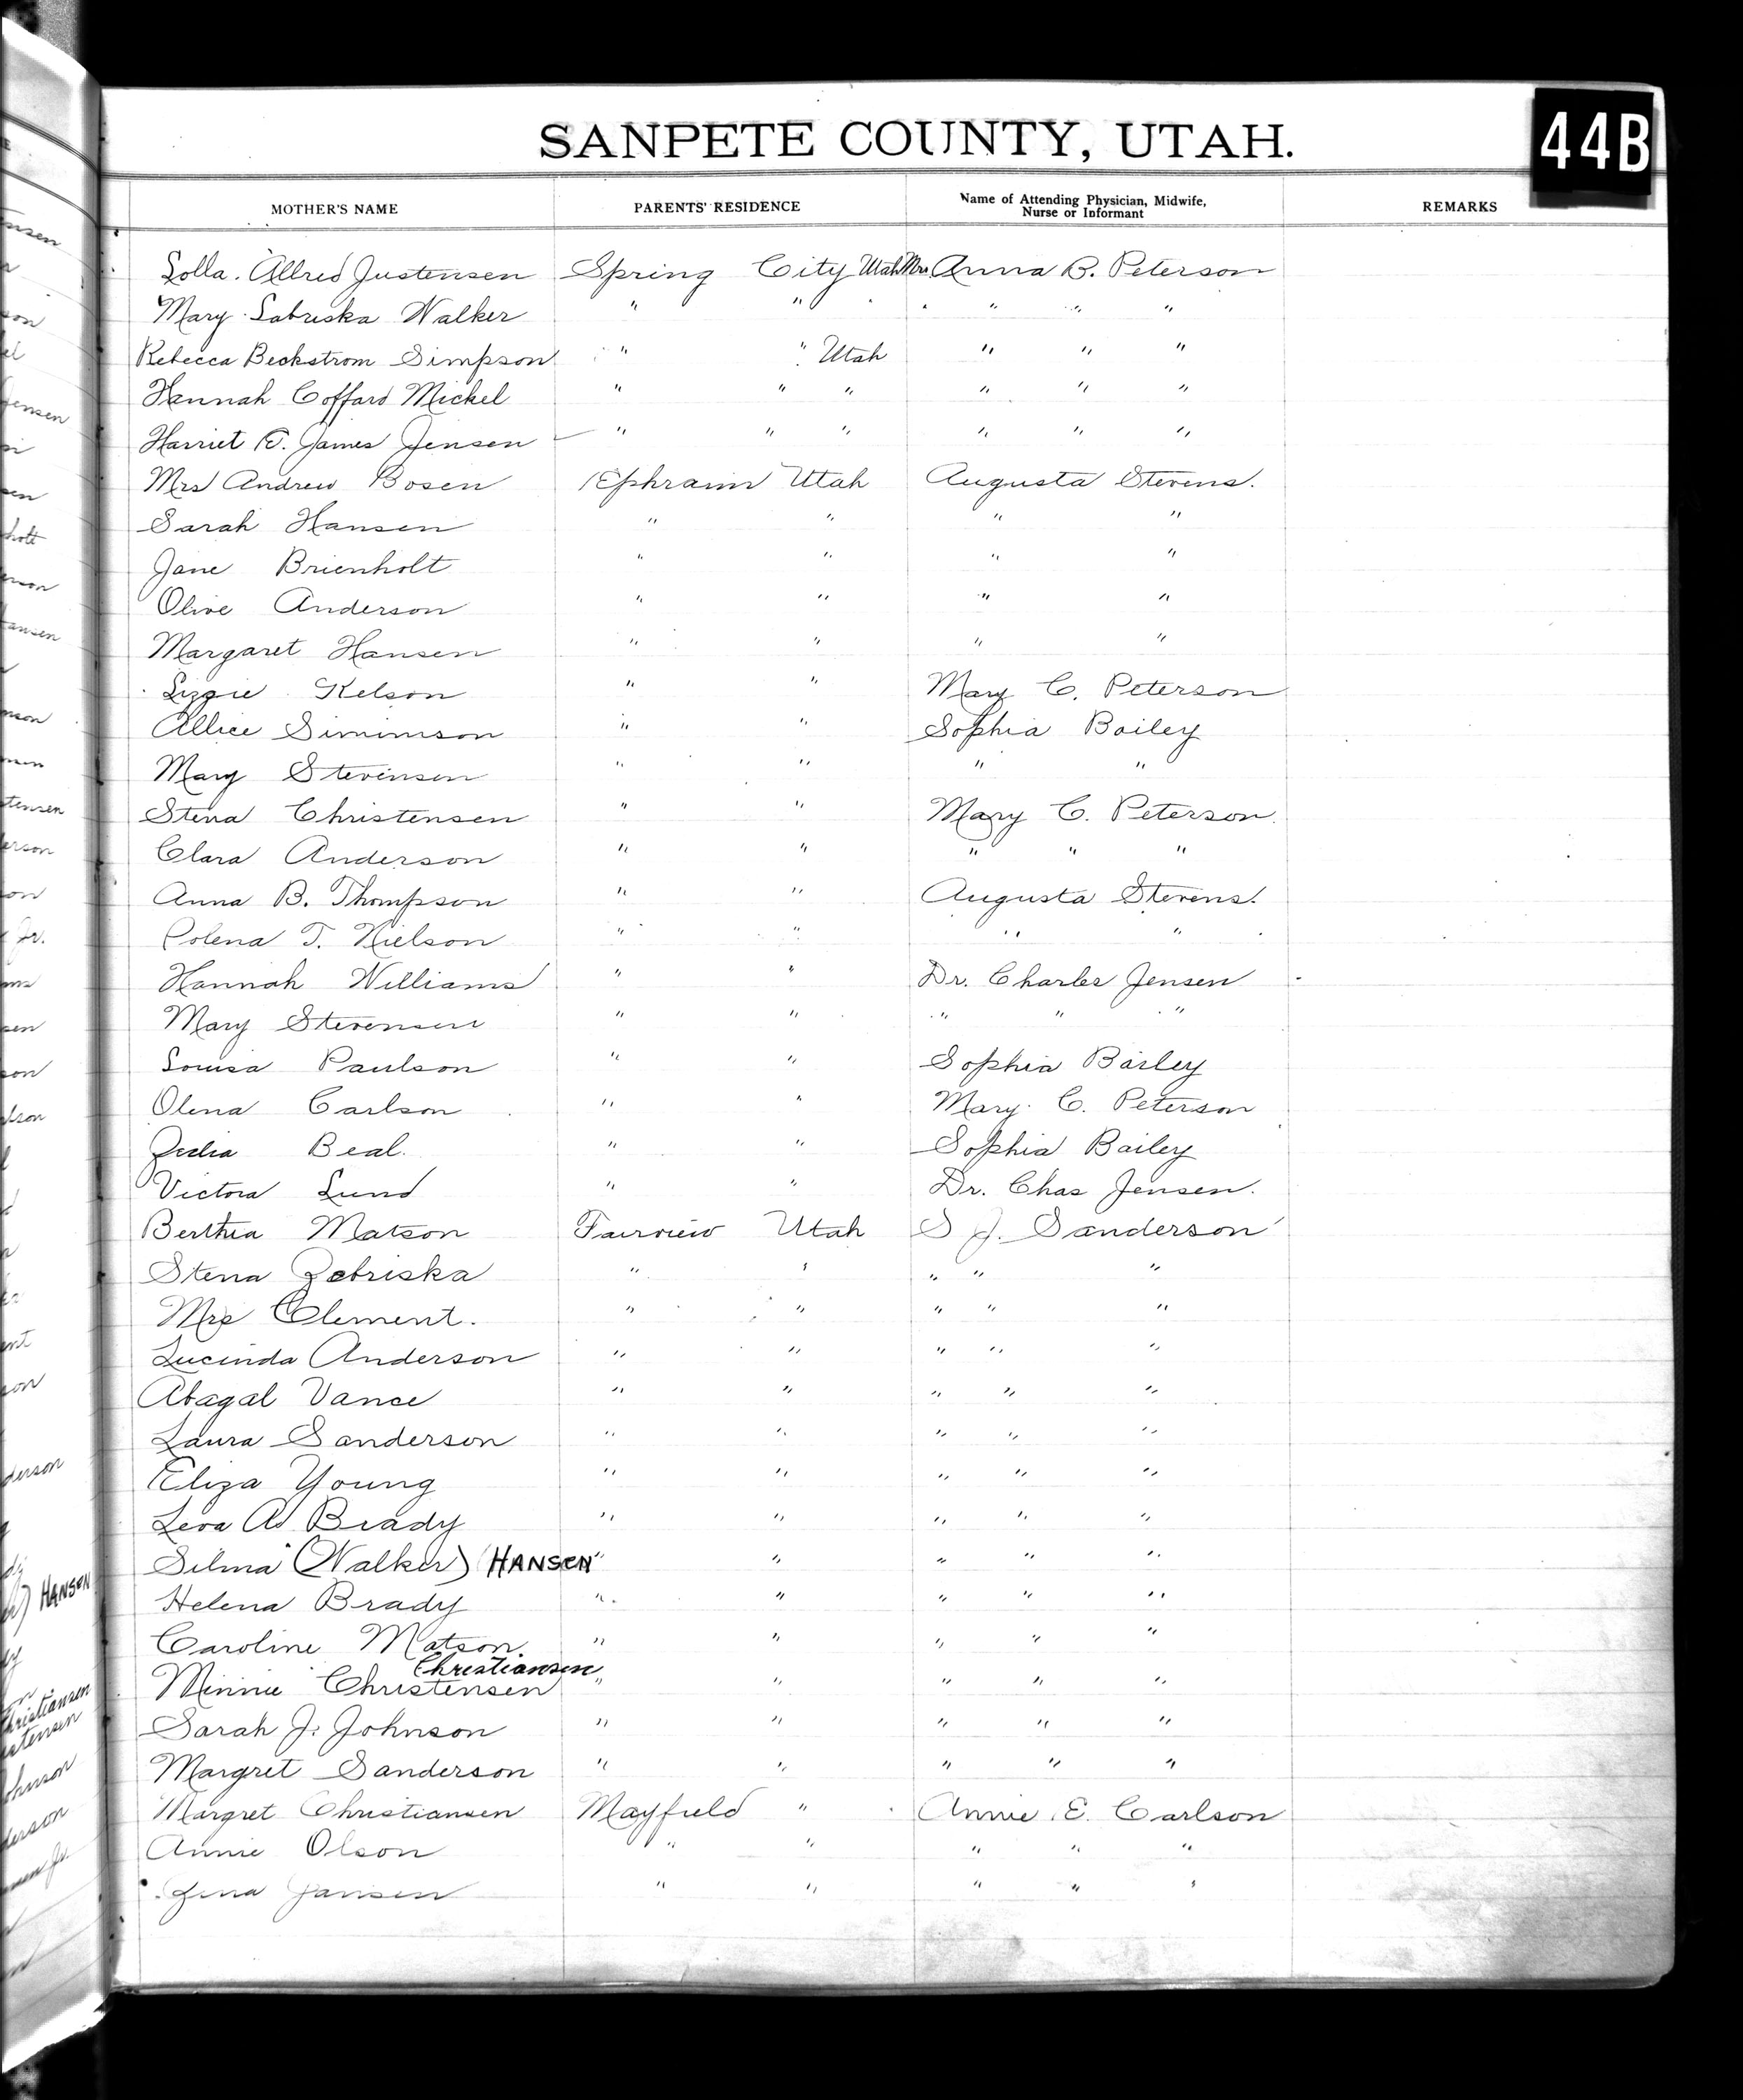 44B
SANPETE COUNTY, UTAH.
MOTHER'S NAME PARENTS' RESIDENCE Name of Attending Physician, Midwife, Nurse or Informant REMARKS
Lolla. Allred Justensen Spring City Utah Mrs. Anna B. Peterson
Mary Sabriska Walker " " " " " "
Rebecca Beckstrom Simpson " " Utah " " "
Hannah Coffard Mickel " " " " " "
Harriet E. James Jensen " " " " " "
Mrs Andrew Bosen Ephraim Utah Augusta Stevens.
Sarah Hansen " " " "
Jane Brienholt " " " "
Olive Anderson " " " "
Margaret Hansen " " " "
Lizzie Kelson " " Mary C. Peterson
Allice Simimson " " Sophia Bailey
Mary Stevenson " " " "
Stena Christensen " " Mary C. Peterson.
Clara Anderson " " " " "
Anna B. Thompson " " Augusta Stevens.
Polena T. Nielson " " " "
Hannah Williams " " Dr. Charles Jensen
Mary Stevensen " " " " "
Louisa Paulson " " Sophia Bailey
Olena Carlson " " Mary C. Peterson
Beal. " " Sophia Bailey
Victora Lund " " Dr. Chas Jensen.
Berthia Matson Fairview Utah S J. Sanderson
Stena Zebriska " " " " "
Mrs Clement. " " " " "
Lucinda Anderson " " " " "
Abagal Vance " " " " "
Laura Sanderson " " " " "
Eliza Young " " " " "
Leva A Brady " " " " "
Silma (Walker) HANSEN " " " " "
Helena Brady " " " " "
Caroline Matson " " " " "
Christiansen
Minnie Christensen " " " " "
Sarah J. Johnson " " " " "
Margret Sanderson " " " " "
Margret Christiansen Mayfield " Annie E. Carlson
Annie Olson " " " " "
Zina Jansen " " " " "